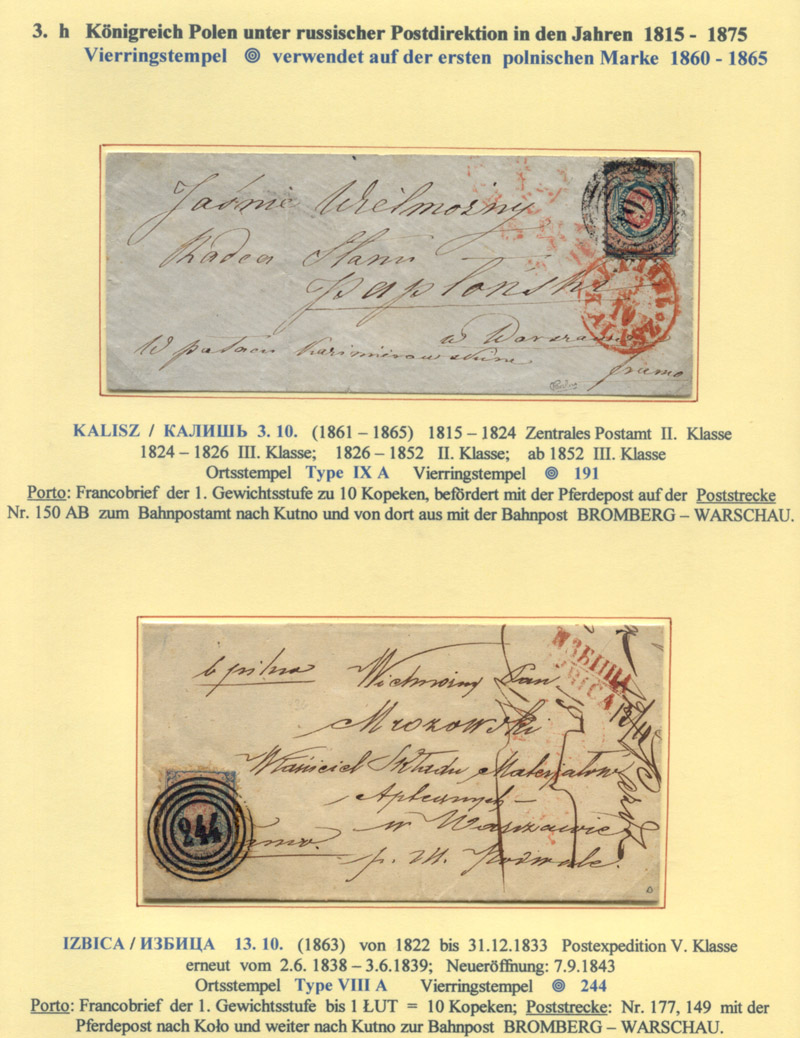 3. h Königreich Polen unter russischer Postdirektion in den Jahren 1815 - 1875
Vierringstempel verwendet auf der ersten polnischen Marke 1860 - 1865
191
Jaśnie Wielmożny
Radca Stanu
Papłoński
w Warszawie
W pałacu Kazimirowskim
franco
KALISZ / КАЛИШЬ 3. 10. (1861 – 1865) 1815 – 1824 Zentrales Postamt II. Klasse
1824 – 1826 III. Klasse; 1826 – 1852 II. Klasse; ab 1852 III. Klasse
Ortsstempel Type IX A Vierringstempel 191
Porto: Francobrief der 1. Gewichtsstufe zu 10 Kopeken, befördert mit der Pferdepost auf der Poststrecke
Nr. 150 AB zum Bahnpostamt nach Kutno und von dort aus mit der Bahnpost BROMBERG – WARSCHAU.
ИЗБИЦА
IZBICA
b. pilno
Wielmożny Pan
Mrozowski
Właściciel Składu Materjałow
Aptecznych –
w Warszawie
p. M. Podwale.
244
IZBICA / ИЗБИЦА 13. 10. (1863) von 1822 bis 31.12.1833 Postexpedition V. Klasse
erneut vom 2.6. 1838 – 3.6.1839; Neueröffnung: 7.9.1843
Ortsstempel Type VIII A Vierringstempel 244
Porto: Francobrief der 1. Gewichtsstufe bis 1 ŁUT = 10 Kopeken; Poststrecke: Nr. 177, 149 mit der
Pferdepost nach Koło und weiter nach Kutno zur Bahnpost BROMBERG – WARSCHAU.